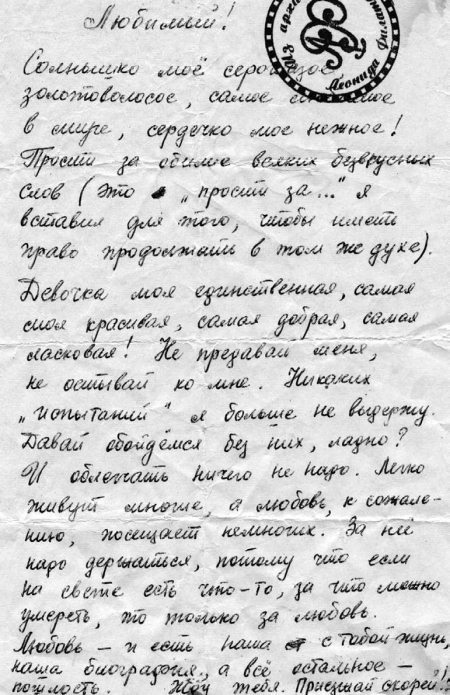 Любимый!
Из архи
Леонида Филат
Солнышко моё
золотоволосое, самое
в мире, сердечко мое нежное!
Прости за обилие всяких безвкусных
слов (это „прости за..." я
вставил для того, чтобы иметь
право продолжать в том же духе).
Девочка моя единственная, самая
моя красивая, самая добрая, самая
ласковая! Не предавай меня,
не остывай ко мне. Никаких
„испытаний" я больше не выдержу.
Давай обойдёмся без них, ладно?
И облегчать ничего не надо. Легко
живут многие, а любовь, к сожале-
нию, посещает немногих. За неё
надо держаться, потому что если
на свете есть что-то, за что можно
умереть, то только за любовь.
Любовь – и есть наша с тобой жизнь,
наша биография, а всё остальное –
пошлость. Жду тебя. Приезжай скорей!